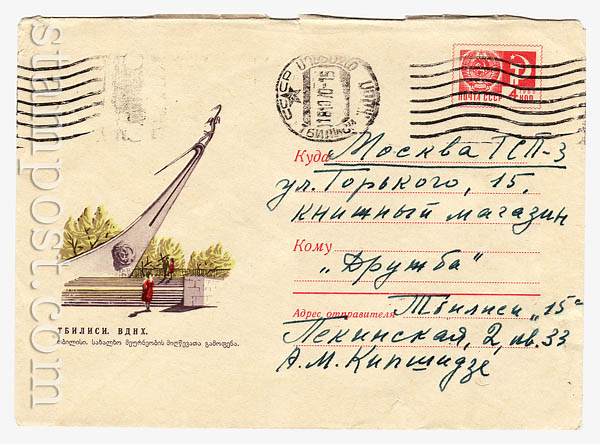 stamp-post.com
СССР
ТБИЛИСИ
ПОЧТА СССР
4 КОП
Куда Москва ГСП-3
ул. Горького, 15.
книжный магазин
Кому
„Дружба"
Адрес отправителя: Тбилиси „15"
Пекинская, 2, кв. 33
А.М. Кипшидзе
ТБИЛИСИ. ВДНХ.
თბილისი. სახალხო მეურნეობის მიღწევათა გამოფენა.